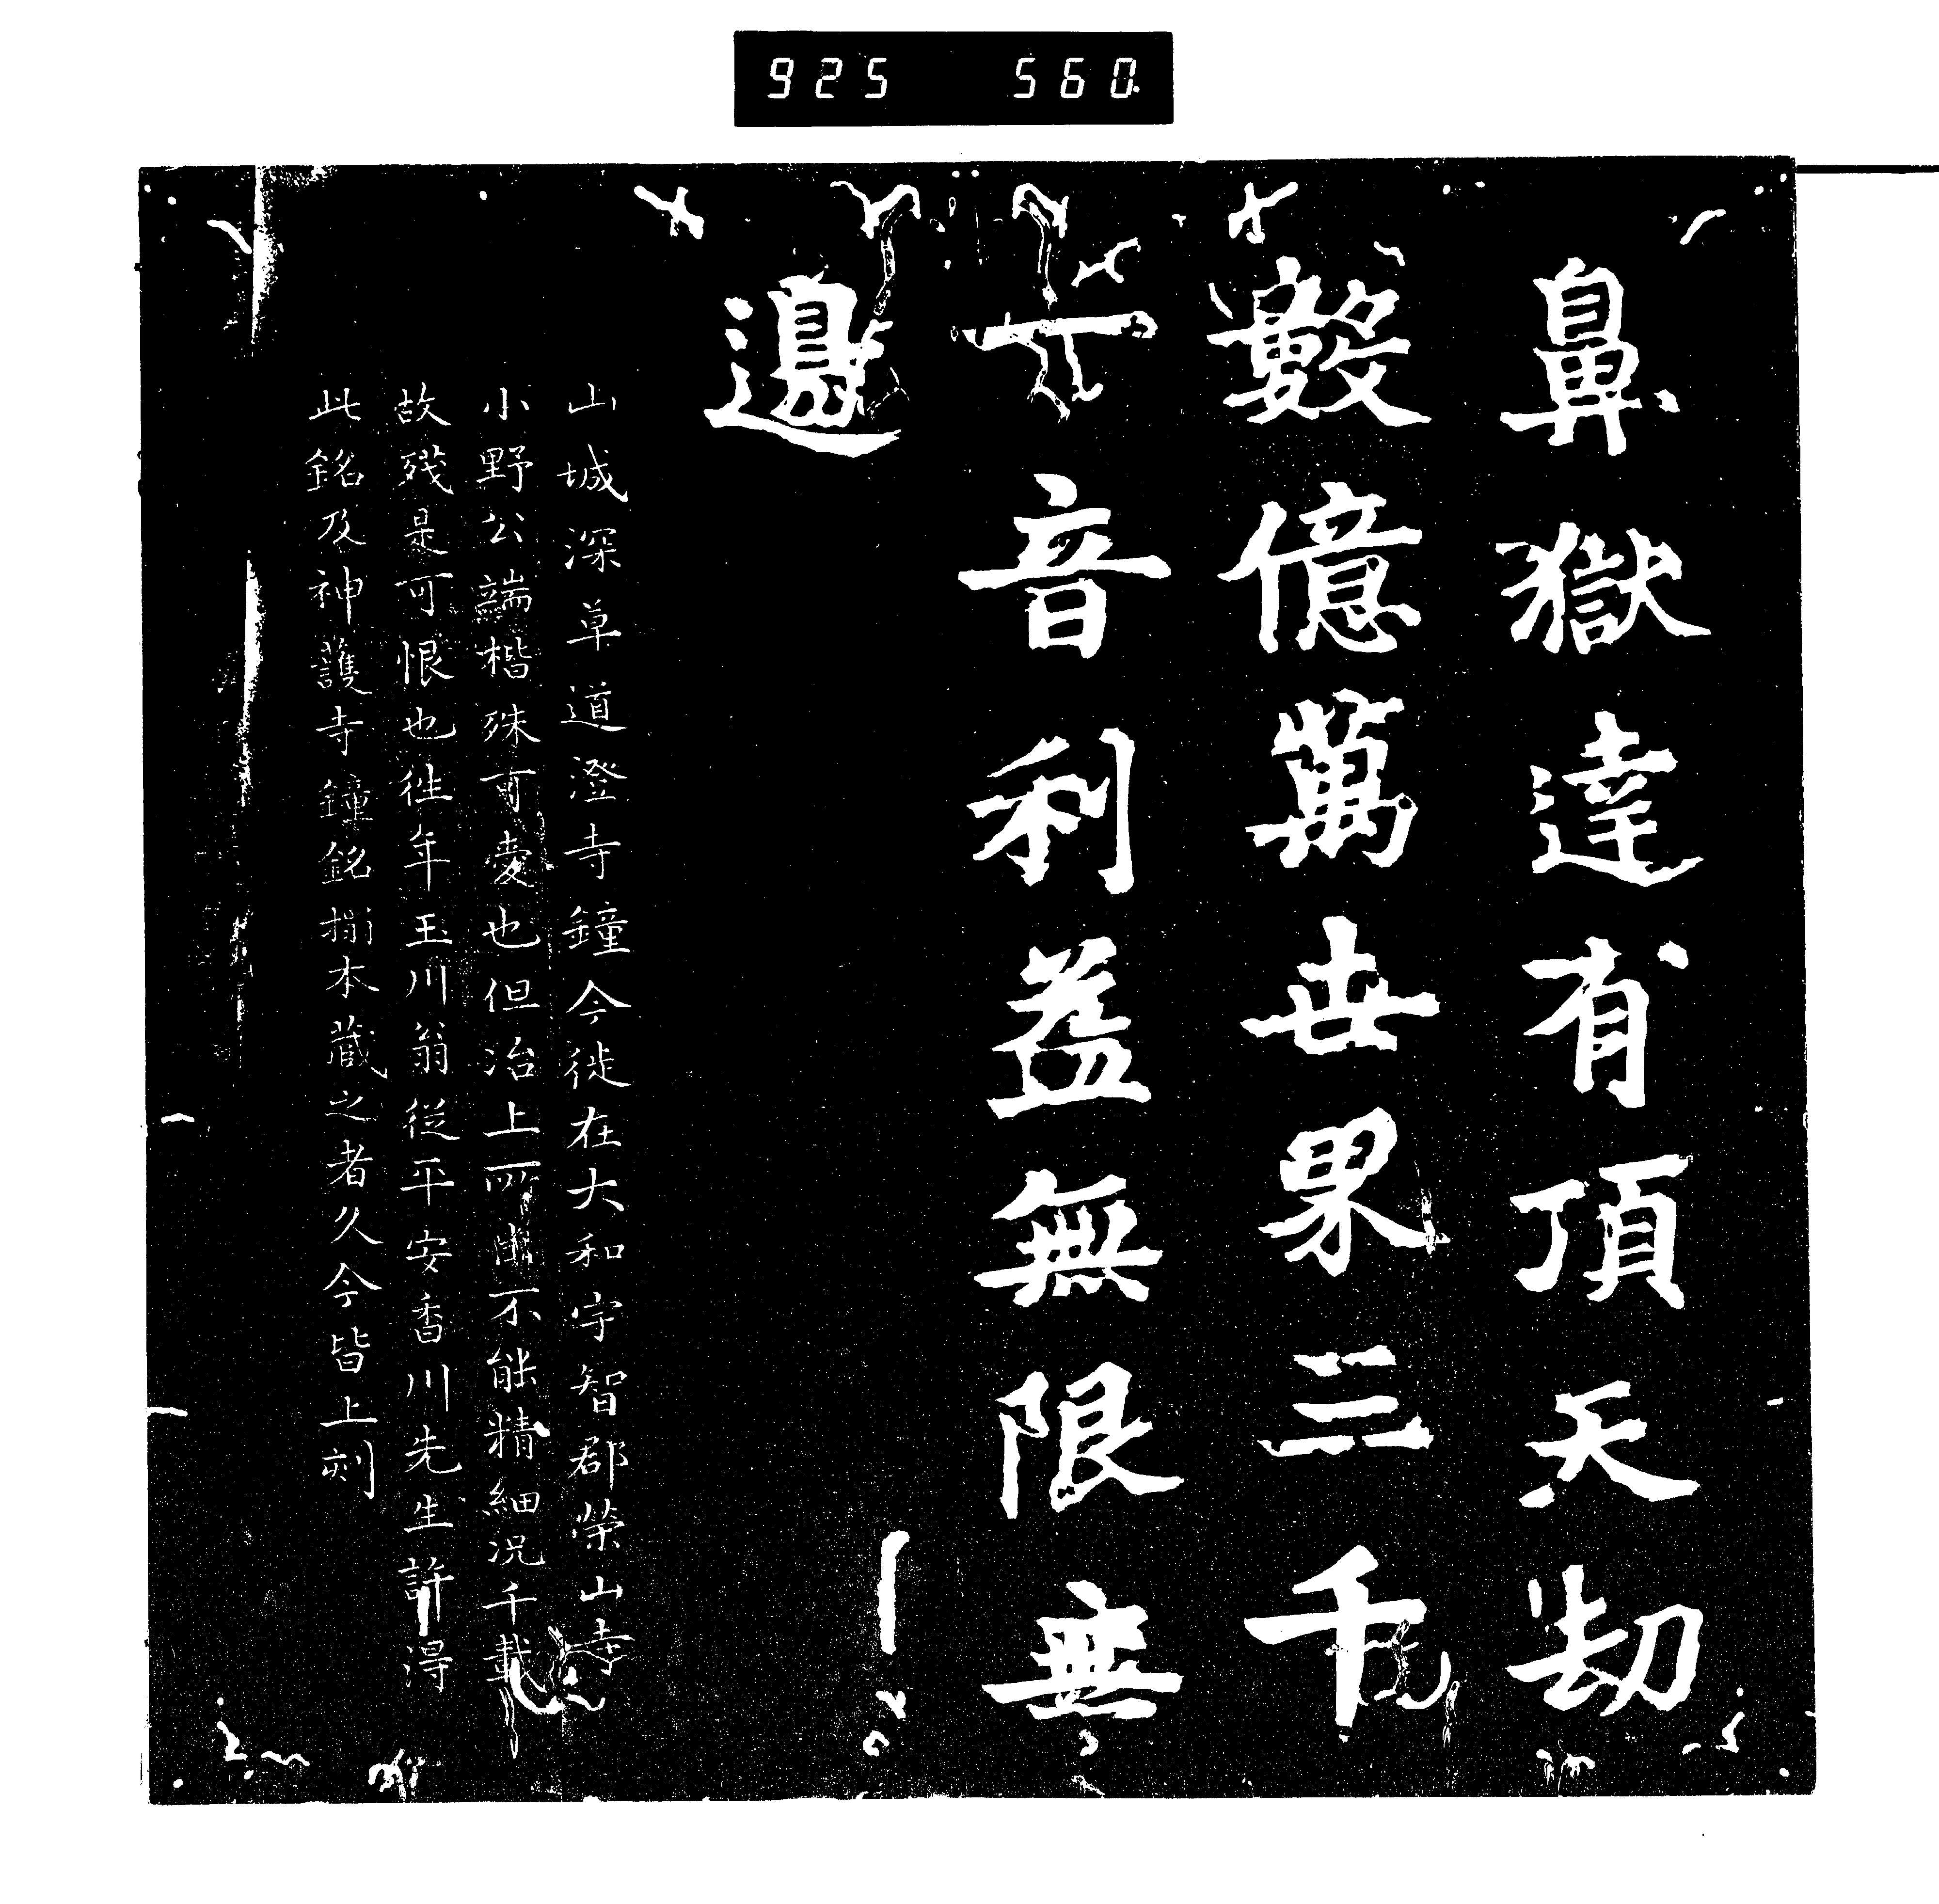 925 560.
鼻獄達有頂天刧
數億萬世界三千
一音利益無限無
邊
山城深草道澄寺鐘今徙在大和宇智郡榮山寺
小野公端楷殊可愛也但冶上所出不能精細況千載
故殘是可恨也徃年玉川翁從平安香川先生許得
此銘及神護寺鐘銘搨本藏之者久今皆上刻